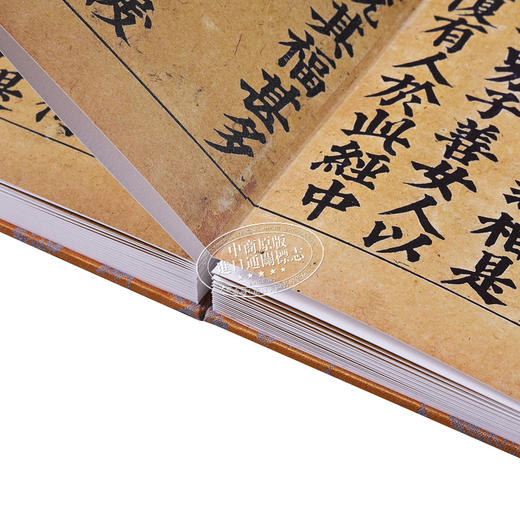 相是
男子善女人以
復有人於此經中
其福甚多
中商原版
進口通關標志